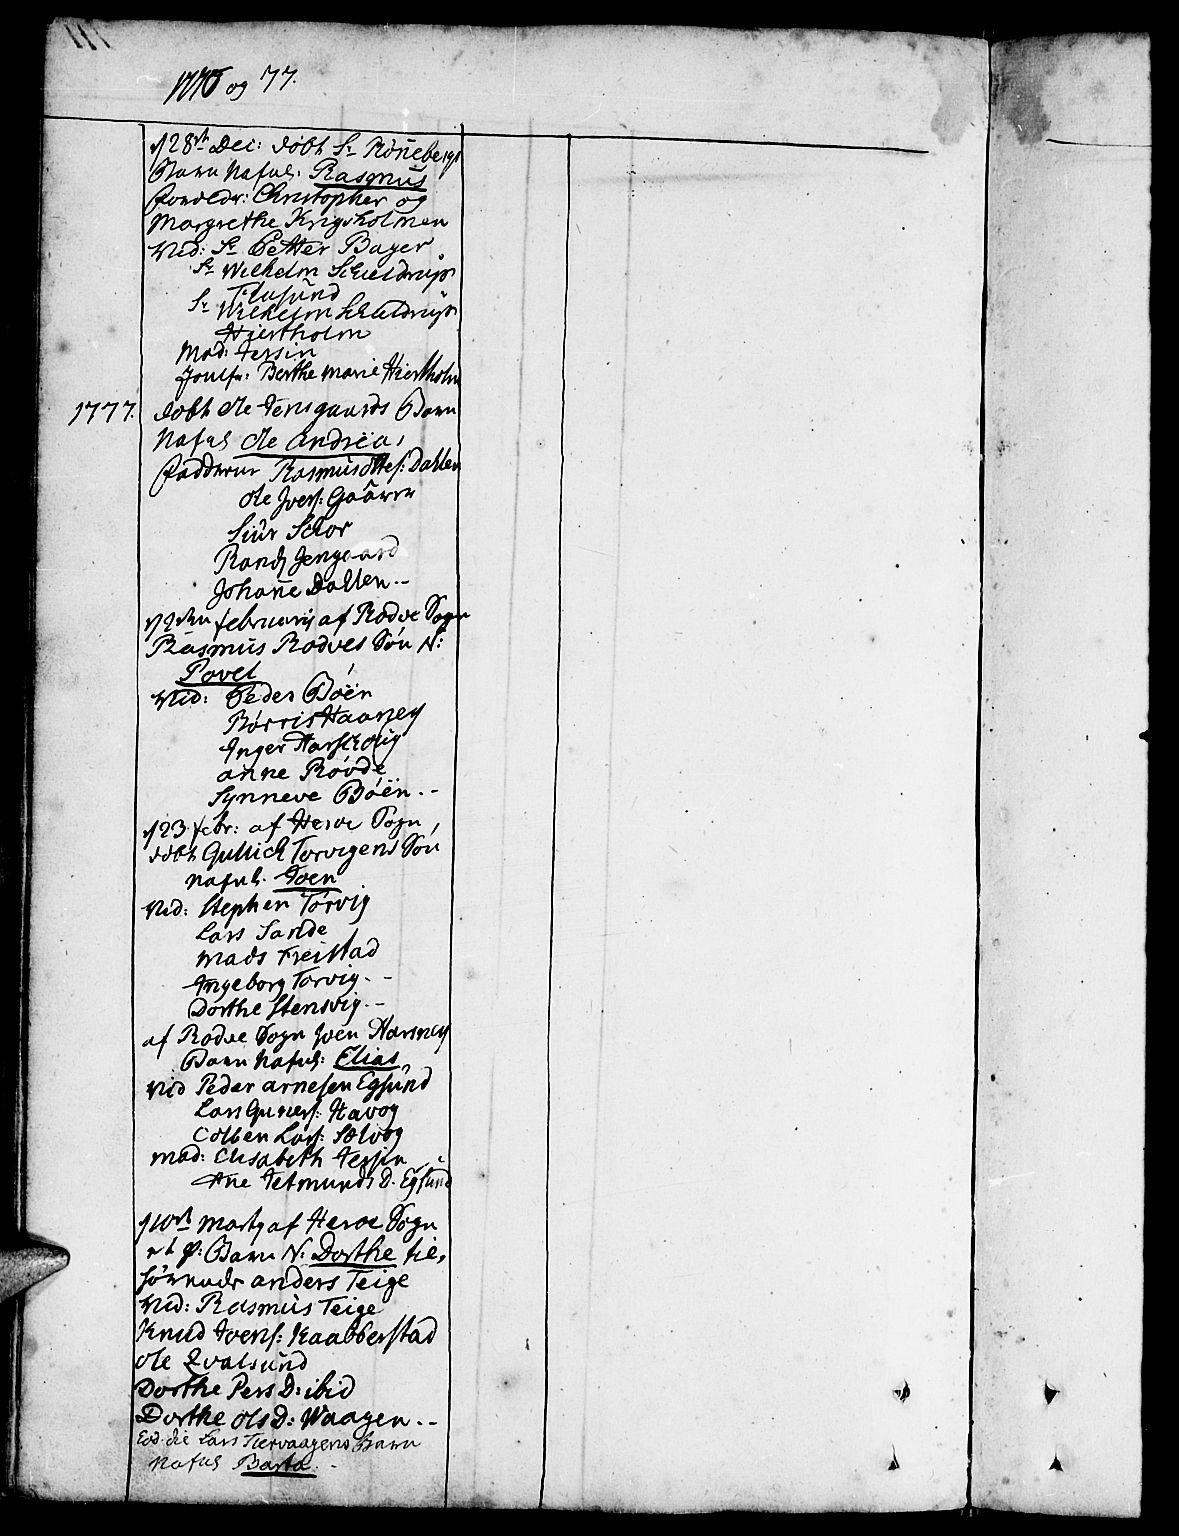 1776 og 77.
d 28de Dec: døbt Sr Røneberg
Barn Nafnl: Rasmus
Foreldr: Christopher og
Margrethe Krigsholmen
Vid: Sr Petter Bager
Sr Wilhelm Schieldrup
Sr Wilhelm Schieldrup
Hiertholm
Mad: Jersin
Jomfr: Berthe Marie Hiertholm
1777. døbt Ole Jensgaards Barn
Nafnl Ole Andrëas
Faddere Rasmus Dahlen
Ole Ivers: Gaaren
Siur
Rand Jengaard
Johañe Dahlen --
d 2den februarij af Rødve Sogn
Rasmus Rødves Søn N:
Povel
Vid: Peder Böen
Börris Haaney
Inger
Anne Rövde
Synneve Böen --
d 23 febr: af Herøe Sogn
døbt Gullich Torvigens Søn
Nafnl. Joen
Vid: Stephen Torvig
Lars Sande
Mads Freistad
Ingeborg Torvig --
Dorthe Stensvig --
af Rødve Sogn Joen
Barn Nafnl: Elias
Vid Peder Arnesen Egsund
Lars Guners: Havog
Colben Lars: Sælvog
Mad: Elisabeth Jersin
Ane Jetmunds D. Egsund
d 10de Marty af Herøe Sogn
Barn N: Dorthe
Anders Teige
Vid: Rasmus Teige
Knud Joens: Kaabberstad
Ole Qvalsund
Dorthe Pers D: ibid
Dorthe Ols D: Waagen --
Eod. die Lars Barn
Nafnl Barta. -